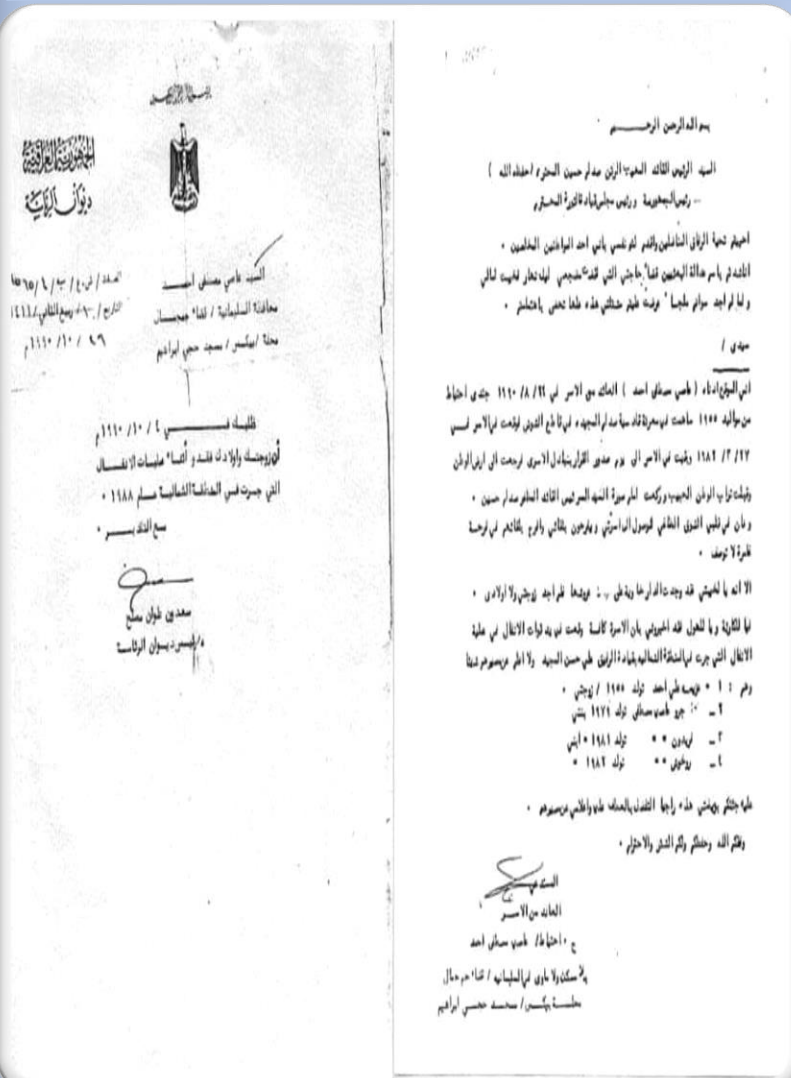 بسم الله الرحمن الرحيم
السيد الرئيس القائد المهيب الركن صدام حسين المحترم (حفظه الله)
رئيس الجمهورية ورئيس مجلس قيادة الثورة المحترم
احييكم تحية الرفاق المناضلين واقدم لكم نفسي باني احد المواطنين المخلصين .
اناشدكم باسم عدالة البعثيين قضاء حاجتي التي
ولما لم اجد سواكم ملجأ عرضت عليكم مشكلتي هذه علها تحظى باهتمامكم .
سيدي /
اني الموقع ادناه ( عاصي مصطفى احمد ) العائد من الاسر في ٢٤/ ٨/ ١٩٩٠ جندي احتياط
من مواليد ١٩٥٥ ساهمت في معركة قادسية صدام المجيدة في قاطع الشوش فوقعت في الاسر فــي
٢٧/ ٣/ ١٩٨٢ وبقيت في الاسر الى يوم صدور القرار بتبادل الاسرى فرجعت الى ارض الوطن
وقبلت تراب الوطن الحبيب وركعت امام صورة السيد الرئيس القائد المظفر صدام حسين .
وكان في قلبي الشوق الطاغي للوصول الى اسرتي ويفرحون بلقائي وافرح بلقائهم في فرحة
غامرة لا توصف .
الا انه يا لخيبتي قد وجدت الدار خاوية على عروشها فلم اجد زوجتي ولا اولادي .
فيا للكارثة ويا للهول فقد اخبروني بان الاسرة كافة وقعت في يد قوات الانفال في عملية
الانفال التي جرت في المنطقة الشمالية بقيادة الرفيق علي حسن المجيد ولا اعلم عن مصيرهم شيئا
وهم : ١ . عزيمه علي احمد تولد ١٩٥٥ / زوجتي .
٢ــ جرو عاصي مصطفى تولد ١٩٧٩ بنتي
٣ــ فريدون ٠٠ تولد ١٩٨١ ابني
٤ــ روخوش ٠٠ تولد ١٩٨٢ .
عليه جئتكم بعريضتي هذه راجيا التفضل بالعطف علي واعلامي عن مصيرهم .
وفقكم الله وحفظكم ولكم الشكر والاحترام .
المستدعي
العائد من الاسر
ج . احتياط/ عاصي مصطفى احمد
بلا سكن ولا ماوى في السليمانية / قضاء جمجمال
محلـــة بيكــس/ مسجد حجي ابراهيم
بسم الله الرحمن الرحيم
الجمهورية العراقية
ديوان الرئاسة
التاريخ / ربيع الثاني/ ١٤١١
٢٩ / ١٠ / ١٩٩٠م
السيد عاصي مصطفى احمد
محافظة السليمانية / قضاء جمجمال
محلة /بيكس/ مسجد حجي ابراهيم
طلبك فـــــي ٤ / ١٠ / ١٩٩٠م
أن زوجتك واولادك فقدوا أثناء عمليات الانفال
التي جرت في المنطقة الشمالية عــام ١٩٨٨ .
مــع التقديــــر .
سعدون علوان مصلح
ع/رئيس ديــوان الرئاســة